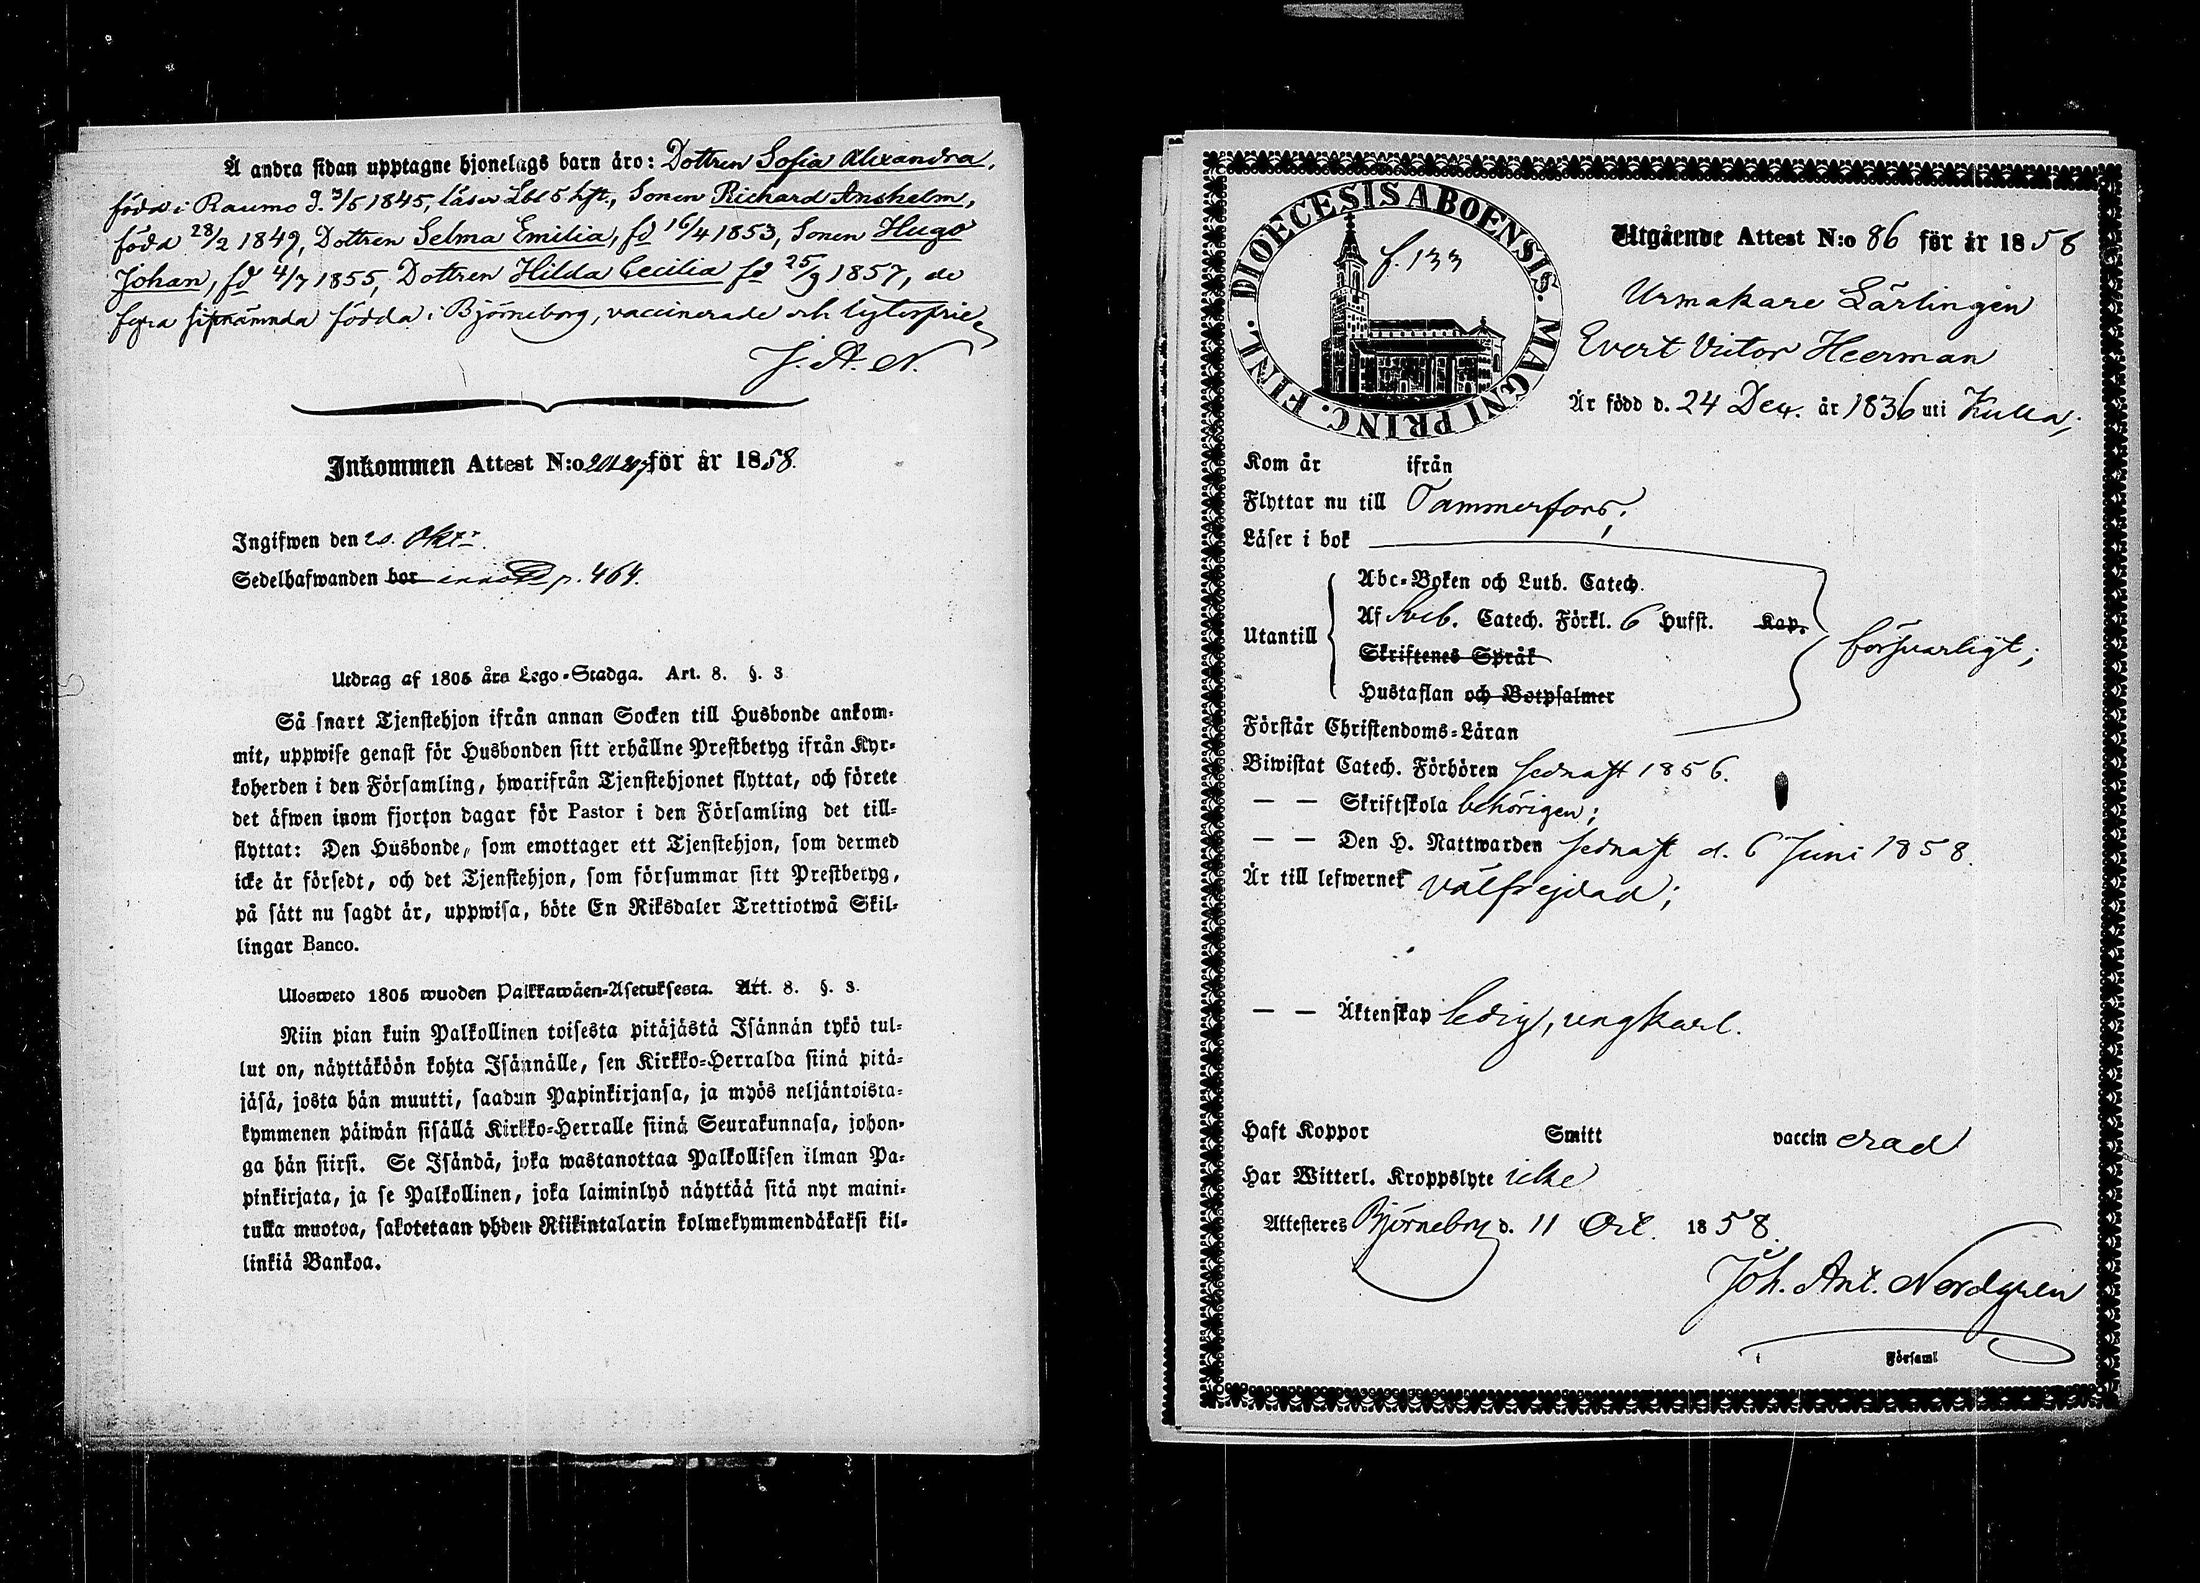 Å andra sidan upptagne hjonelags barn äro: Dottren Sofia Alexandra,
född i Raumo d. 3/5 1845, läser Lbl 5 hft., Sonen Richard Anshelm,
född 28/2 1849, Dottren Selma Emilia, fd 16/4 1853, Sonen Hugo
Johan, fd 4/7 1855, Dottren Hilda Cecilia fd 25/9 1857, de
fyra sistnämnda födda i Björneborg, vaccinerade och lytesfrie
J. A. N.
Inkommen Attest N:o för år 1858.
Ingifwen den 20. Oktr.
Sedelhafwanden bor p. 464.
Utdrag af 1805 års Lego-Stadga. Art. 8. §. 3
Så snart Tjenstehjon ifrån annan Socken till Husbonde ankom-
mit, uppwise genast för Husbonden sitt erhållne Prestbetyg ifrån Kyr-
koherden i den Församling, hwarifrån Tjenstehjonet flyttat, och förete
det äfwen inom fjorton dagar för Pastor i den Församling det till-
flyttat: Den Husbonde, som emottager ett Tjenstehjon, som dermed
icke är försedt, och det Tjenstehjon, som försummar sitt Prestbetyg,
på sätt nu sagdt är, uppwisa, böte En Riksdaler Trettiotwå Skil-
lingar Banco.
Ulosweto 1805 wuoden Palkkawäen-Asetuksesta. Art. 8. §. 3.
Niin pian kuin Palkollinen toisesta pitäjästä Isännän tykö tul-
lut on, näyttäköön kohta Isännälle, sen Kirkko-Herralda siinä pitä-
jäsä, josta hän muutti, saadun Papinkirjansa, ja myös neljäntoista-
kymmenen päiwän sisällä Kirkko-Herralle siinä Seurakunnasa, johon-
ga hän siirsi. Se Isändä, joka wastanottaa Palkollisen ilman Pa-
pinkirjata, ja se Palkollinen, joka laiminlyö näyttää sitä nyt maini-
tulla muotoa, sakotetaan yhden Riikintalarin kolmekymmendäkaksi kil-
linkiä Bankoa.
DIOECESIS ABOENSIS. MAGNI PRINC. FINL.
f. 133
Utgående Attest N:o 86 för år 1858
Urmakare Lärlingen
Evert Victor Heerman
Är född d. 24 Dec. år 1836 uti Kulla;
Kom år ifrån
Flyttar nu till Tammerfors;
Läser i bok
Abc-Boken och Luth. Catech.
Utantill
Af Sveb. Catech. Förkl. 6 Hufst. Kap.
Skriftenes Språk
Hustaflan och Botpsalmer
försvarligt;
Förstår Christendoms-Läran
Biwistat Catech. Förhören sednast 1856.
— — Skriftskola behörigen;
— — Den H. Nattwarden sednast d. 6 Juni 1858.
Är till lefwernet välfrejdad;
— — Äktenskap ledig, ungkarl.
Haft Koppor Smitt vaccinerad
Har Witterl. Kroppslyte icke
Attesteres Björneborg d. 11 Oct. 1858.
Joh. Ant. Nordgren
i Församl